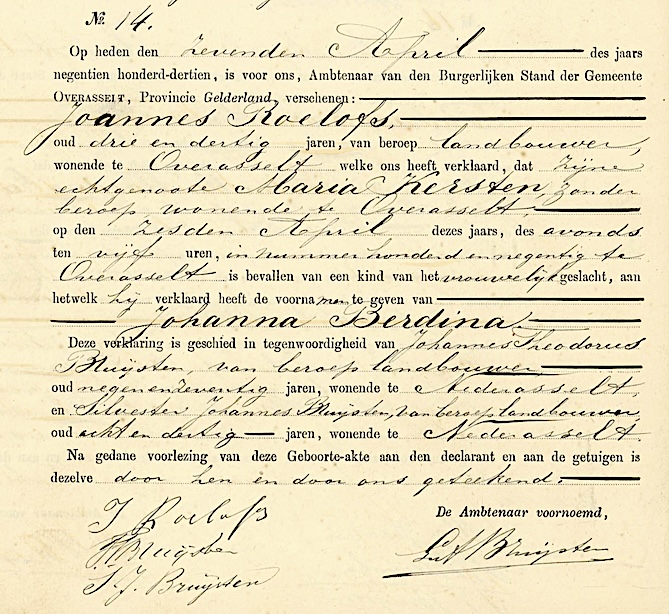 No. 14.
Op heden den zevenden April des jaars
negentien honderd-dertien, is voor ons, Ambtenaar van den Burgerlijken Stand der Gemeente
OVERASSELT, Provincie Gelderland, verschenen:
Joannes Roelofs,
oud drie en dertig jaren, van beroep landbouwer,
wonende te Overasselt welke ons heeft verklaard, dat zijne
echtgenoote Maria Kersten, zonder
beroep wonende te Overasselt,
op den zesden April dezes jaars, des avonds
ten vijf uren, in nummer honderd en negentig te
Overasselt is bevallen van een kind van het vrouwelijk geslacht, aan
hetwelk hij verklaard heeft de voornamen te geven van
Johanna Berdina
Deze verklaring is geschied in tegenwoordigheid van Johannes Theodorus
Bruijsten, van beroep landbouwer
oud negenenzeventig jaren, wonende te Nederasselt,
en Silvester Johannes Bruijsten, van beroep landbouwer,
oud acht en dertig jaren, wonende te Nederasselt.
Na gedane voorlezing van deze Geboorte-akte aan den declarant en aan de getuigen is
dezelve door hen en door ons geteekend.
J Roelofs
De Ambtenaar voornoemd,
Bruijsten
Bruijsten
S. J. Bruijsten